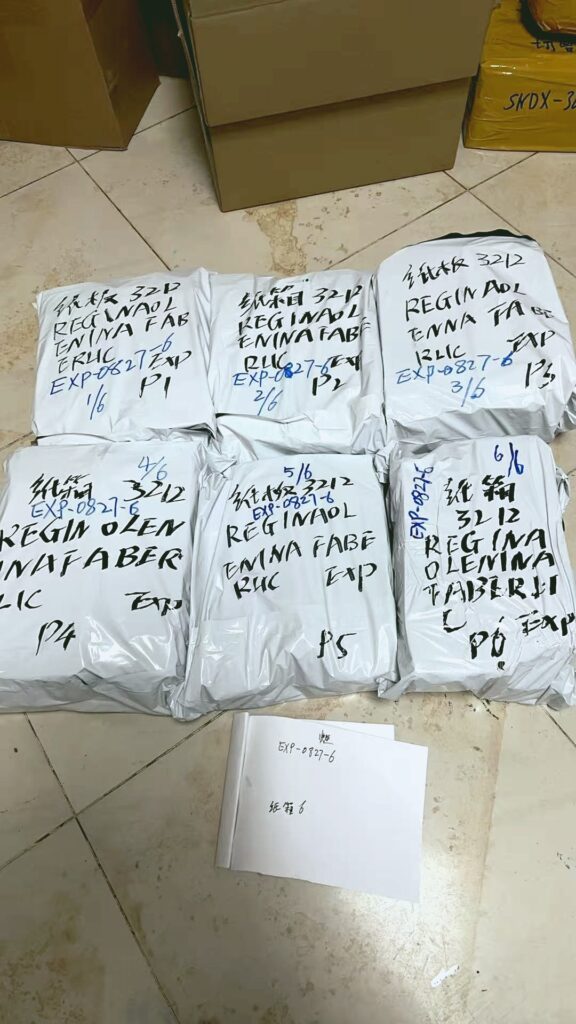 SNDX-32
纸板 3212
REGINAOL
ENINA FAB
ERLIC EXP
EXP-0827-6
P1
1/6
纸箱 3212
REGINAOL
ENINA FABE
RLIC EXP
EXP-0827-6
P2
2/6
纸板 3212
REGINAOL
ENNA FABE
RLIC EXP
EXP-0827-6
P3
3/6
4/6
纸箱 3212
EXP-0827-6
REGIN OLEN
INAFABER
LIC EXP
P4
5/6
纸板 3212
EXP-0827-6
REGINAOL
ENINA FABE
RLIC EXP
P5
6/6
EXP-0827-6
纸箱
3212
REGINA
OLENINA
FABERLI
C EXP
P6
EXP-0827-6
纸箱 6